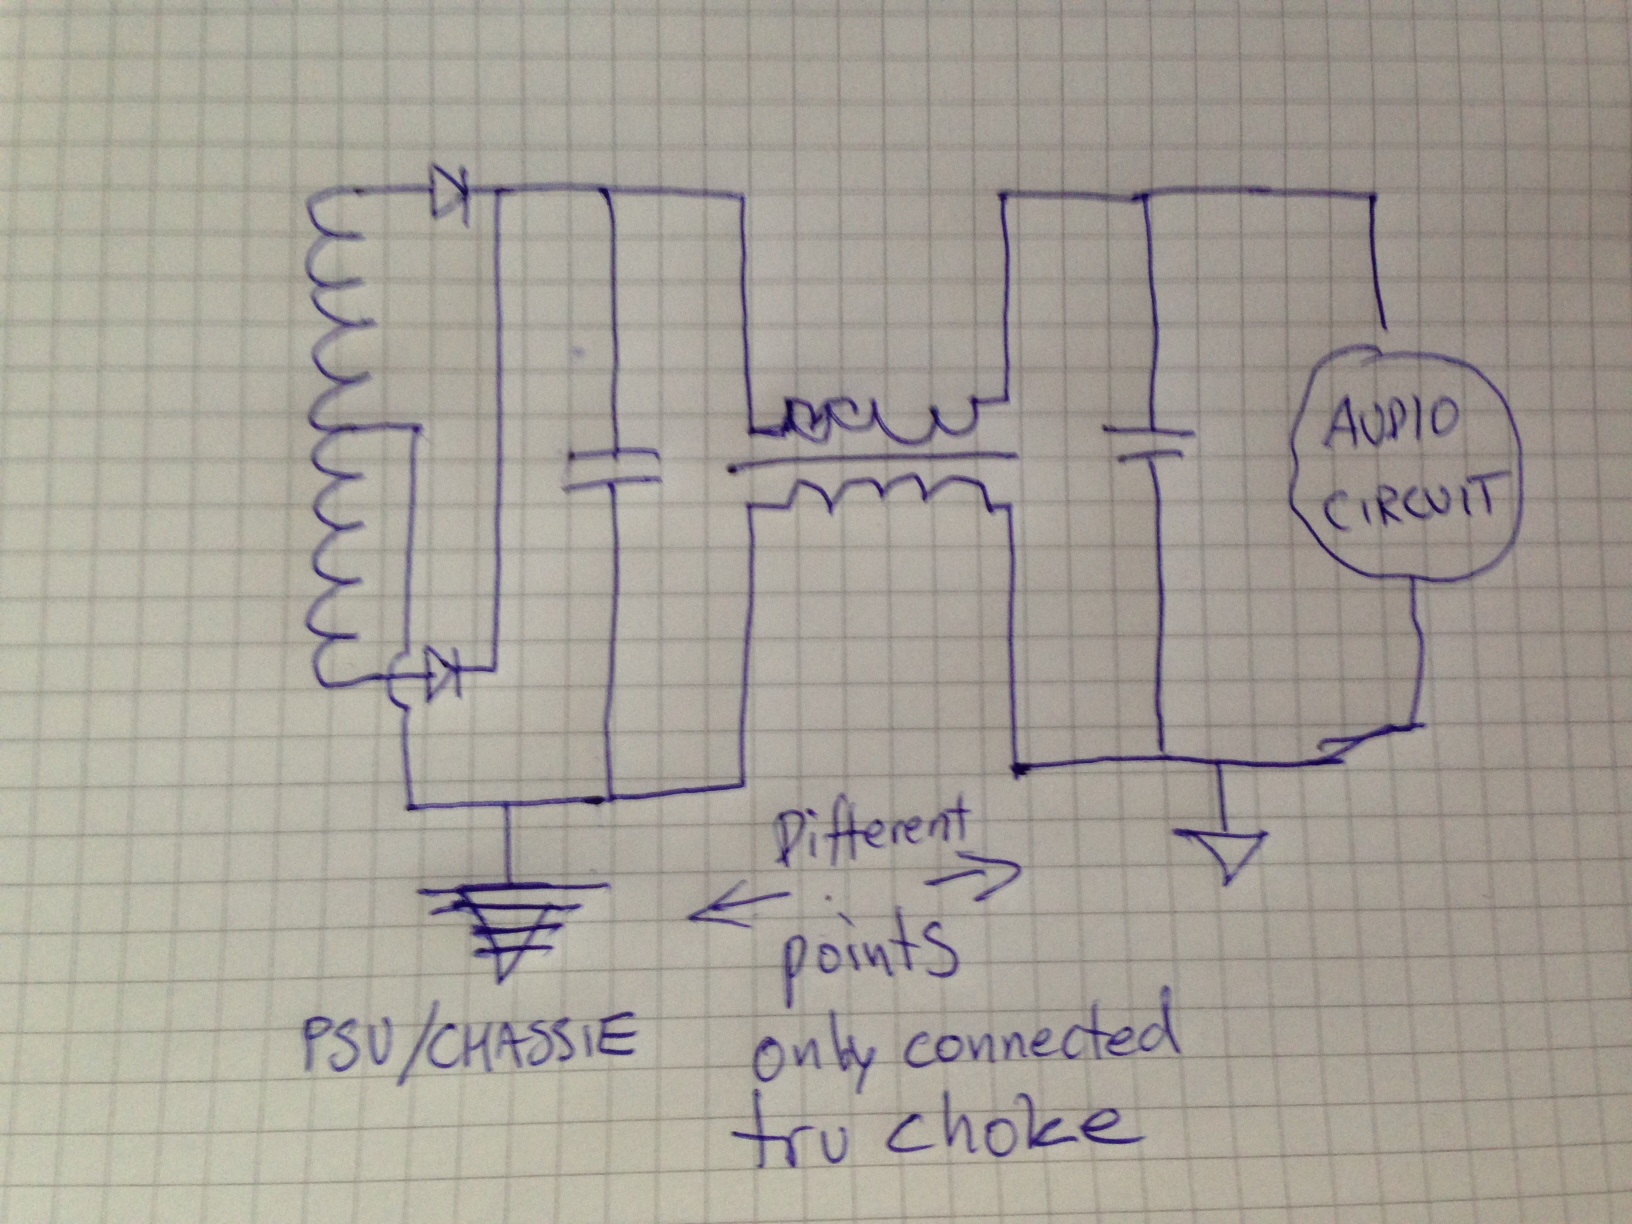 AUDIO
CIRCUIT
Different
points
PSU/CHASSIE
only connected
tru choke